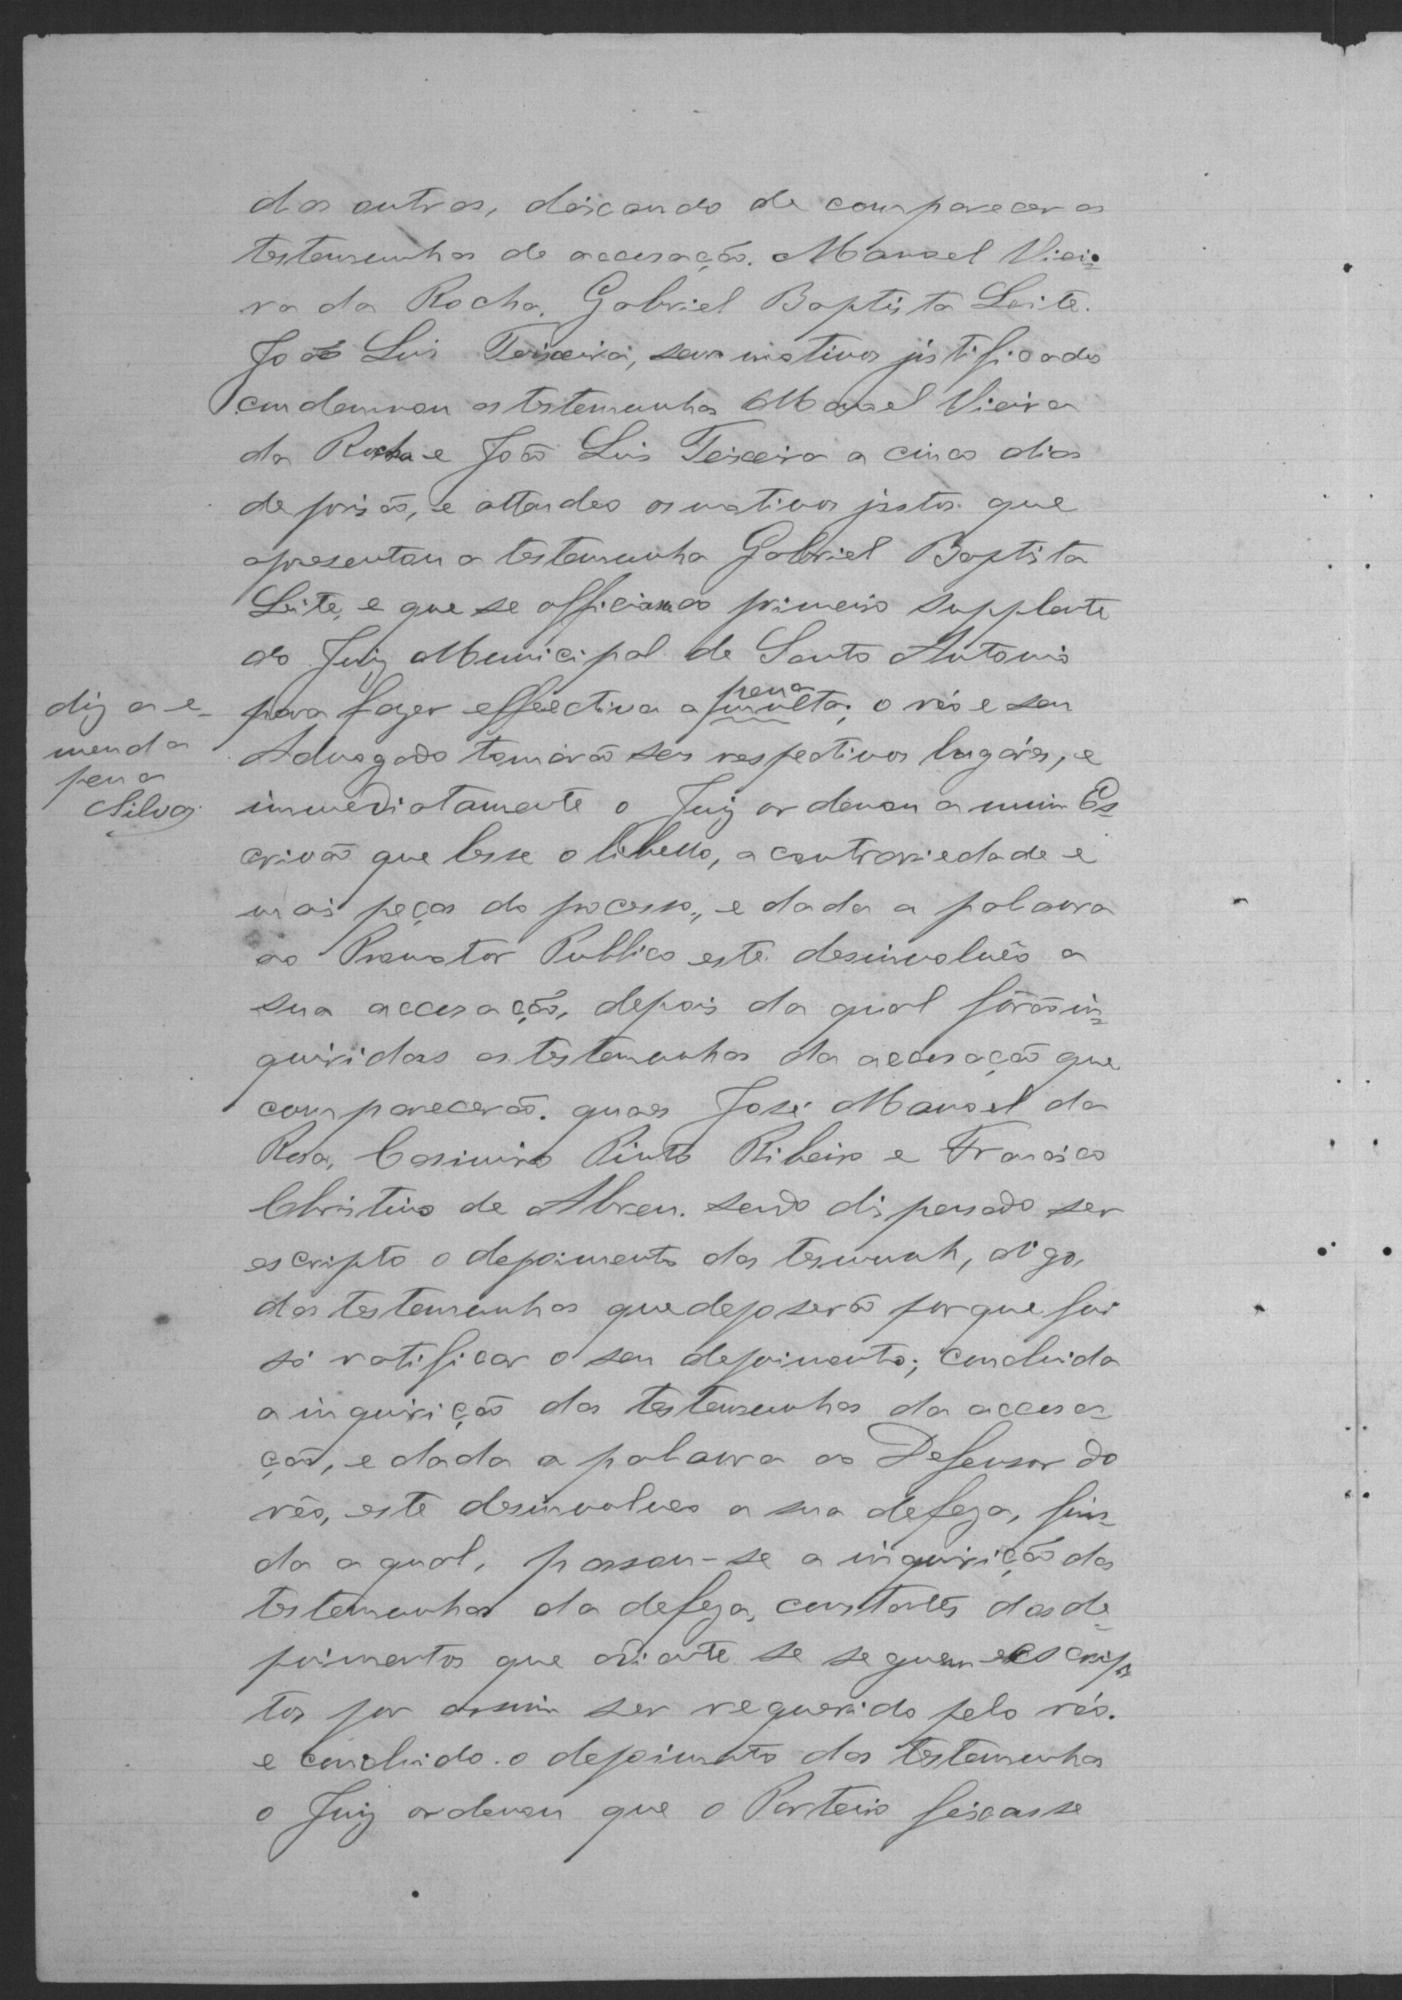 das outras, deixando de comparecer as
testemunhas de accusação. Manoel Viei-
ra da Rocha, Gabriel Baptista Leite.
João Luis Teixeira, sem motivos justificado
condemnou as testemunhas Manoel Vieira
da Rocha e João Luis Teixeira a cinco dias
de prisão, e attendeo os motivos justos que
apresentou a testemunha Gabriel Baptista
Leite, e que se officiasse ao primeiro supplente
do Juiz Municipal de Santo Antonio
pena
para fazer effectiva a multa; o réo e seu
Advogado tomarão seus respectivos lugares, e
immediatamente o Juiz ordenou a mim Es-
crivão que lesse o libello, a contrariedade e
mais peças do processo, e dada a palavra
ao Promotor Publico este desinvolvêo a
sua accusação, depois da qual fôrão in-
quiridas as testemunhas da accusação que
comparecerão. quaes José Manoel da
Rosa, Casimiro Pinto Ribeiro e Francisco
Christino de Abreu. sendo dispensado ser
escripto o depoimento das tesmunh, digo,
das testemunhas que deposerão porque foi
só ratificar o seu depoimento; concluida
a inquirição das testemunhas da accusa-
ção, e dada a palavra ao Defensor do
réo, este desinvolveo a sua defeza, fin-
da a qual, passou-se a inquirição das
testemunhas da defeza, constantes dos de-
poimentos que adiante se seguem escrip-
tos por assim ser requerido pelo réo.
e concluido o depoimento das testemunhas
o Juiz ordenou que o Porteiro feixasse
diz a e-
menda
pena
Silva